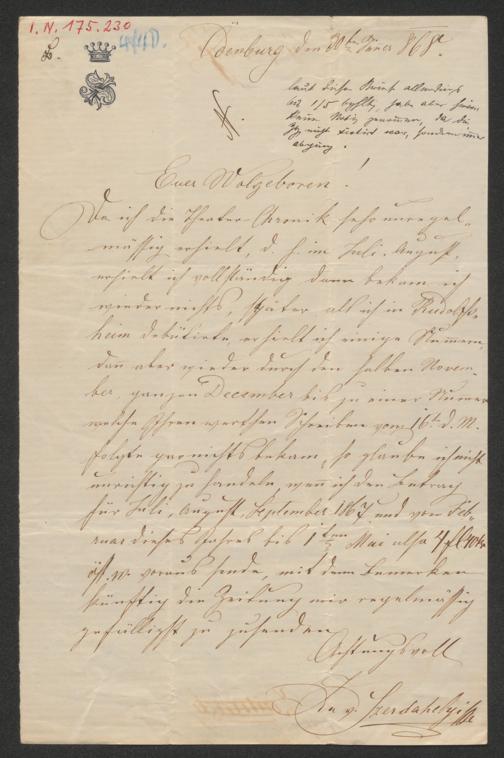 I. N. 175.230
4/4 D.
Ödenburg den 30ten Jäner 868
laut dieses Briefs allerdings
bis 1/5 bezhlt, habe aber hievon
keine Notiz genommen, da die
nicht fixirt war, sondern
Euer Wolgeboren!
Da ich die Theater-Chronik sehr unregel-
mässig erhielt, d. h. im Juli, August,
erhielt ich vollständig dann bekam ich
wieder nichts, später als ich in Rudolfs-
heim debütirte, erhielt ich einige Nummern,
dan aber wieder durch den halben Novem-
ber, ganzen Decemeber bis zu einer Numer
welche Ihren werthen Schreiben vom 16ten d. M.
folgte gar nichts bekam, so glaube ich nicht
unrichtig zu handeln, wen ich den Betrag
für Juli, August, September 1867 und von Feb-
ruar dieses Jahres bis 1ten Mai also 4 fl 40 kr
öst. W. voraus sende, mit dem Bemerken
künftig die Zeitung mir regelmässig
gefälligst zu zusenden
Achtungsvoll
v. Szerdahelyi